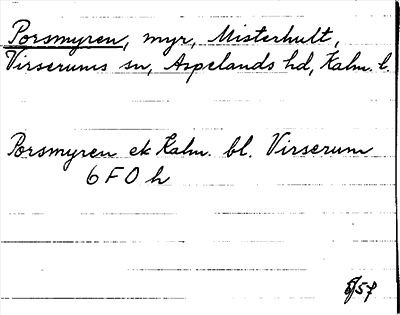 Porsmyren, myr, Misterhult,
Virserums sn, Aspelands hd, Kalm. l.
Porsmyren ek Kalm. bl. Virserum
6 F 0 h